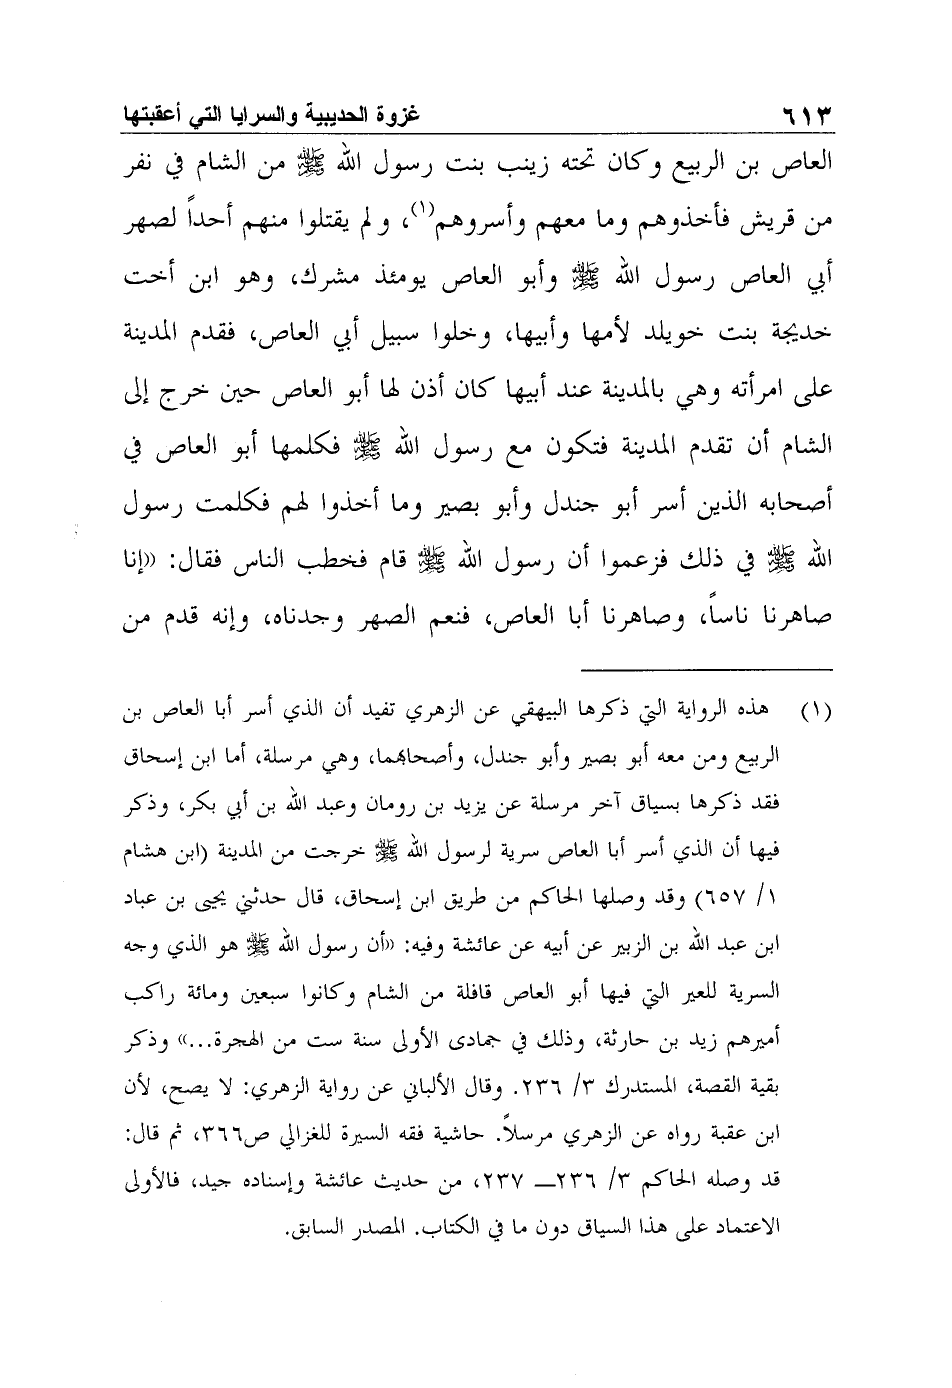 ٦١٣ غزوة الحديبية والسرايا التي أعقبتها
العاص بن الربيع وكان تحته زينب بنت رسول الله ﷺ من الشام في نفر
من قريش فأخذوهم وما معهم وأسروهم(١)، ولم يقتلوا منهم أحداً لصهر
أبي العاص رسول الله ﷺ وأبو العاص يومئذ مشرك، وهو ابن أخت
خديجة بنت خويلد لأمها وأبيها، وخلوا سبيل أبي العاص، فقدم المدينة
على امرأته وهي بالمدينة عند أبيها كان أذن لها أبو العاص حين خرج إلى
الشام أن تقدم المدينة فتكون مع رسول الله ﷺ فكلمها أبو العاص في
أصحابه الذين أسر أبو جندل وأبو بصير وما أخذوا لهم فكلمت رسول
الله ﷺ في ذلك فزعموا أن رسول الله ﷺ قام فخطب الناس فقال: «إنا
صاهرنا ناساً، وصاهرنا أبا العاص، فنعم الصهر وجدناه، وإنه قدم من
(١) هذه الرواية التي ذكرها البيهقي عن الزهري تفيد أن الذي أسر أبا العاص بن
الربيع ومن معه أبو بصير وأبو جندل، وأصحابهما، وهي مرسلة، أما ابن إسحاق
فقد ذكرها بسياق آخر مرسلة عن يزيد بن رومان وعبد الله بن أبي بكر، وذكر
فيها أن الذي أسر أبا العاص سرية لرسول الله ﷺ خرجت من المدينة (ابن هشام
١/ ٦٥٧) وقد وصلها الحاكم من طريق ابن إسحاق، قال حدثني يحيى بن عباد
ابن عبد الله بن الزبير عن أبيه عن عائشة وفيه: «أن رسول الله ﷺ هو الذي وجه
السرية للعير التي فيها أبو العاص قافلة من الشام وكانوا سبعين ومائة راكب
أميرهم زيد بن حارثة، وذلك في جمادى الأولى سنة ست من الهجرة...» وذكر
بقية القصة، المستدرك ٣/ ٢٣٦. وقال الألباني عن رواية الزهري: لا يصح، لأن
ابن عقبة رواه عن الزهري مرسلاً. حاشية فقه السيرة للغزالي ص٣٦٦، ثم قال:
قد وصله الحاكم ٣/ ٢٣٦ــ ٢٣٧، من حديث عائشة وإسناده جيد، فالأولى
الاعتماد على هذا السياق دون ما في الكتاب. المصدر السابق.